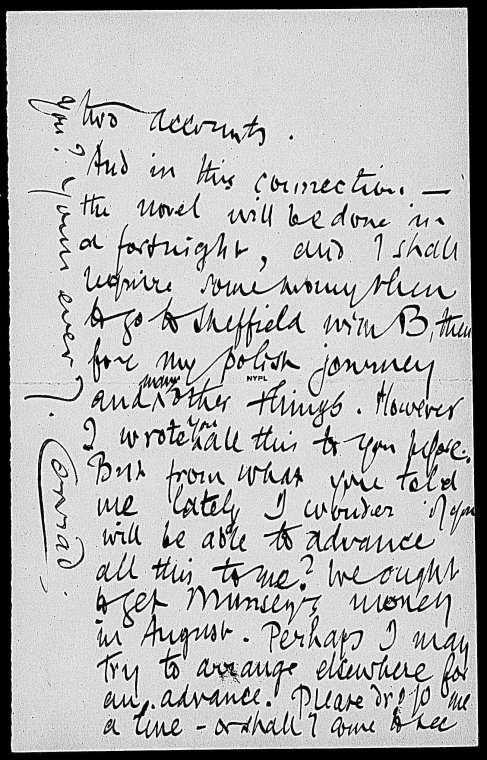 two accounts.
And in this connection —
the novel will be done in
a fortnight, and I shall
require some money then
to go to Sheffield with B, then
for my polish journey
NYPL
and many other things. However
I wrote you all this to you before.
But from what you told
me lately I wonder if you
will be able to advance
all this to me? We ought
to get Munsey's money
in August. Perhaps I may
try to arrange elsewhere for
an advance. Please drop me
a line – or shall I come to see
you? Yours ever J. Conrad.